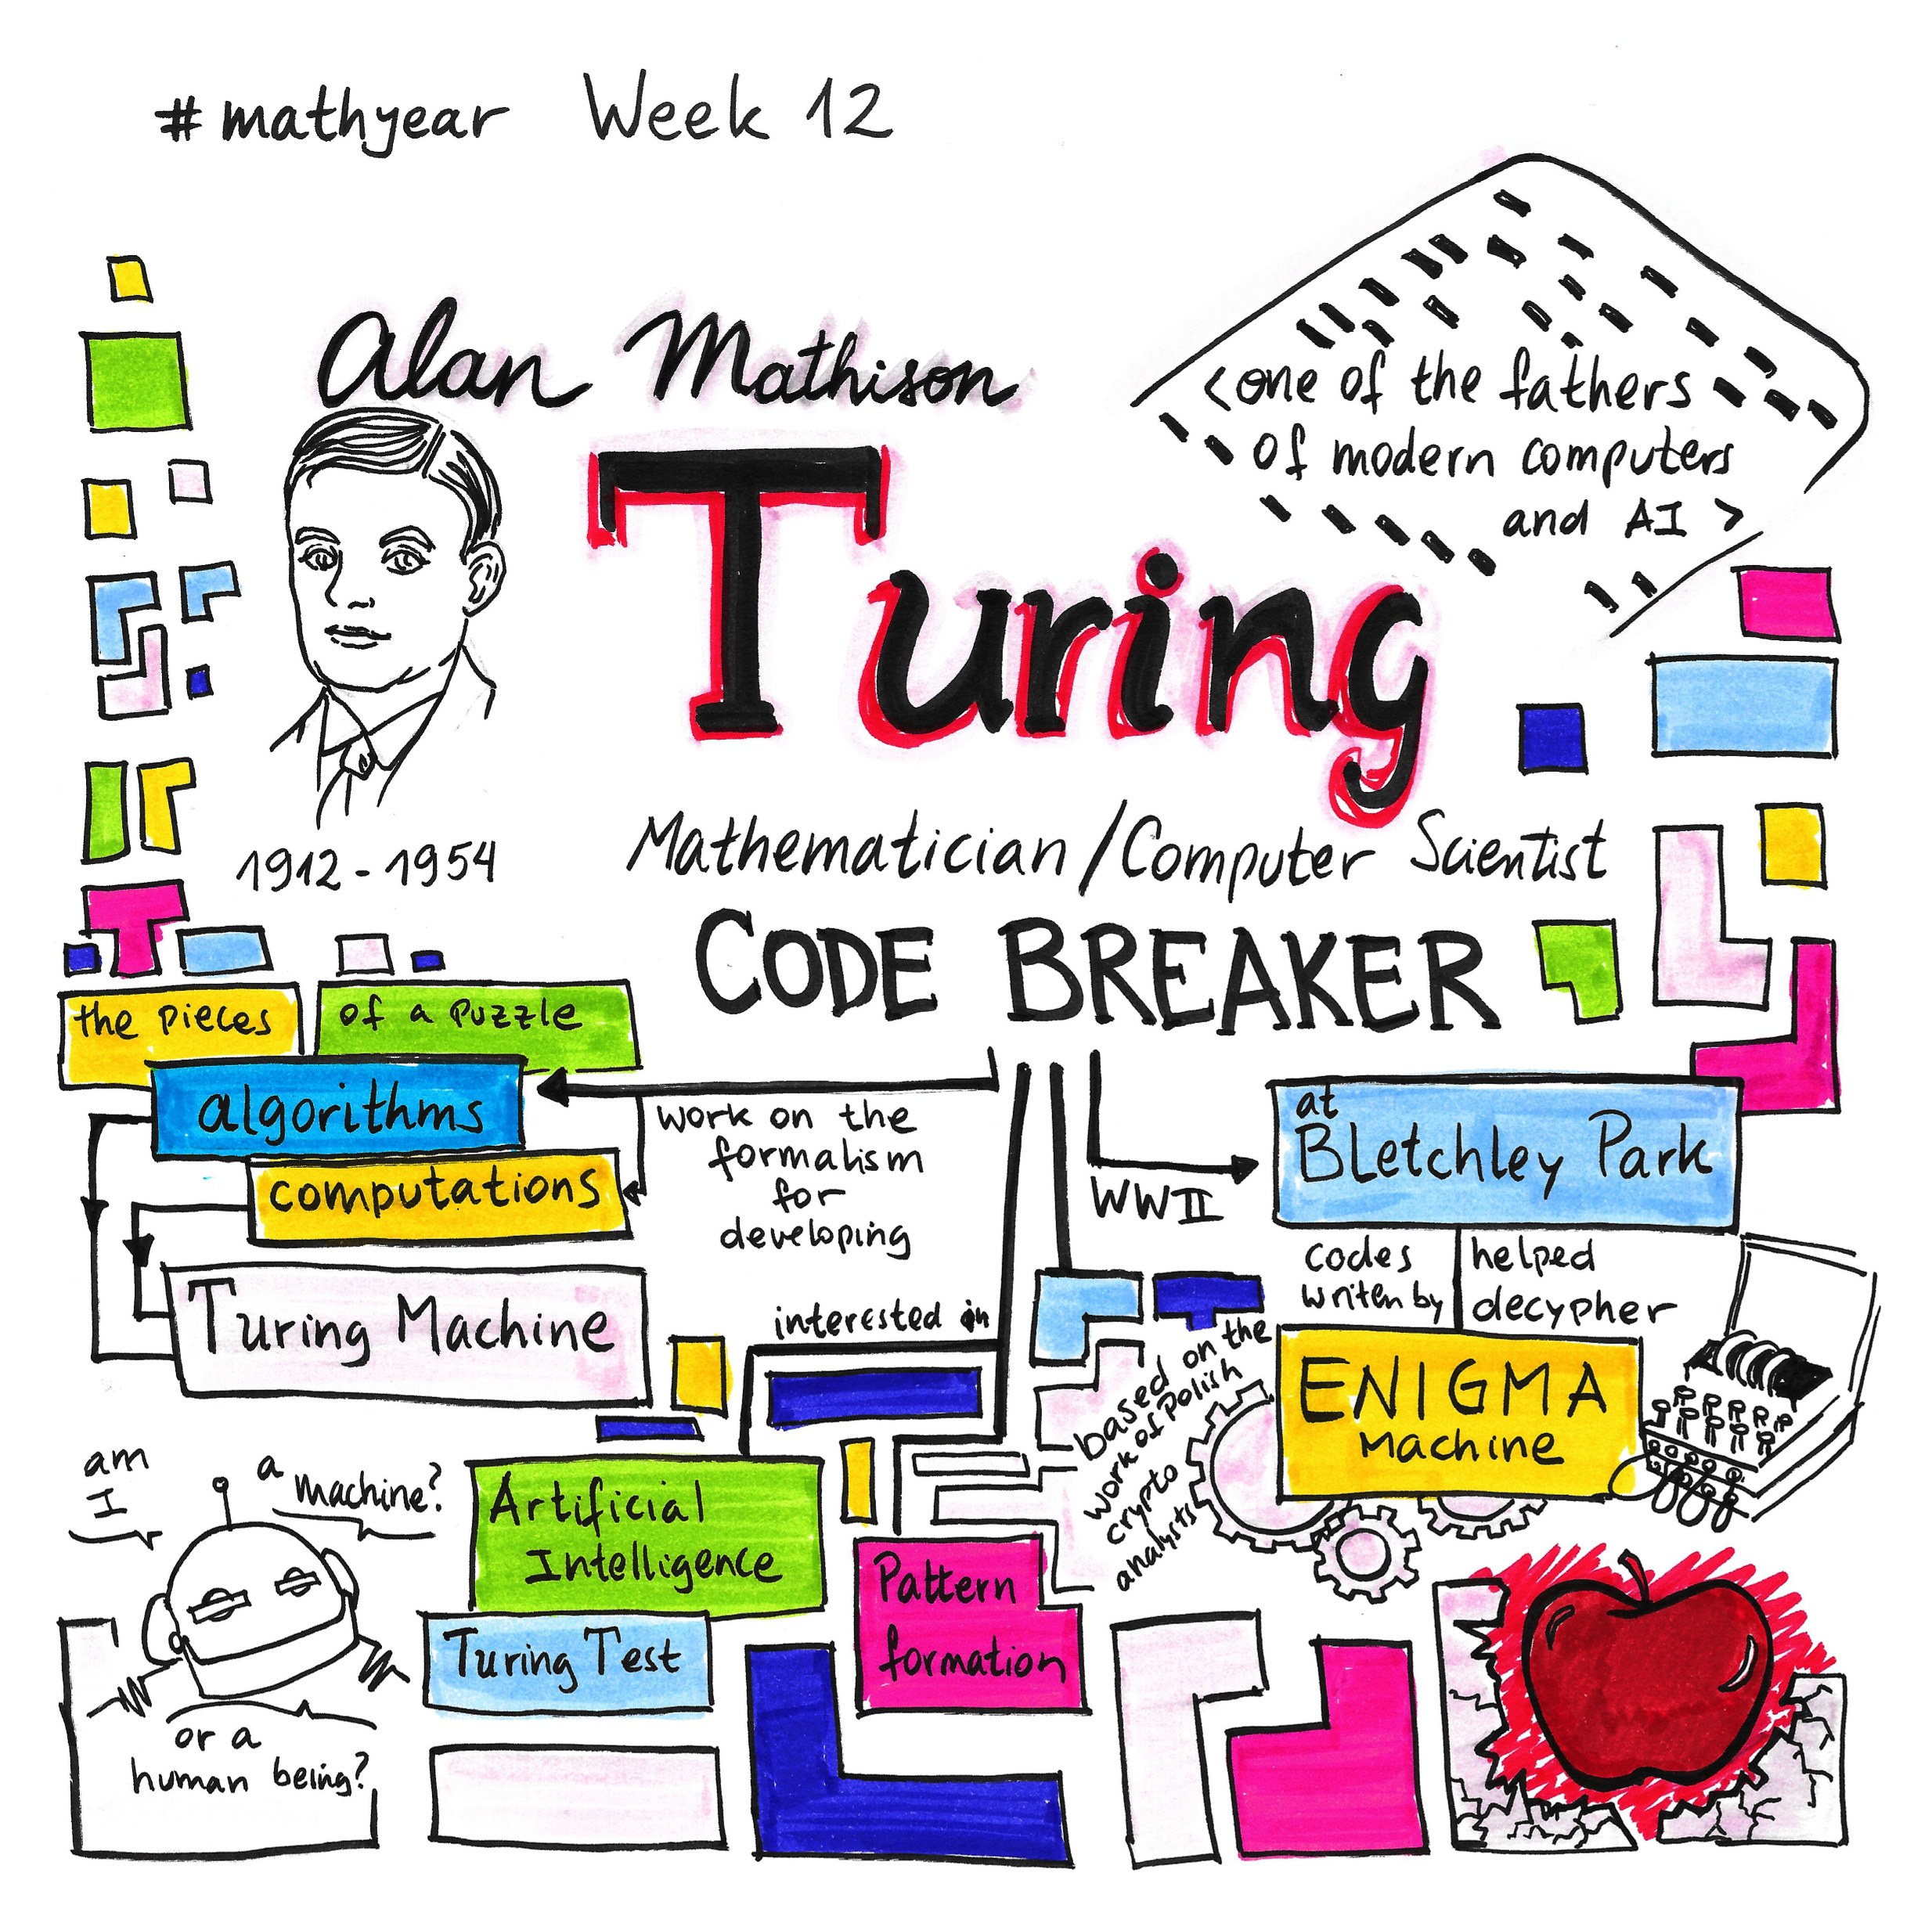 #mathyear Week 12
Alan Mathison
Turing
<one of the fathers
of modern computers
and AI >
1912-1954
Mathematician/Computer Scientist
CODE BREAKER
the pieces
of a puzzle
algorithms
computations
Turing Machine
work on the
formalism
for
developing
WWII
at
Bletchley Park
codes
writen by
helped
decypher
ENIGMA
Machine
based on the
work of Polish
crypto
analysts
interested in
Artificial
Intelligence
Turing Test
Pattern
formation
am
I
a
machine?
or a
human being?